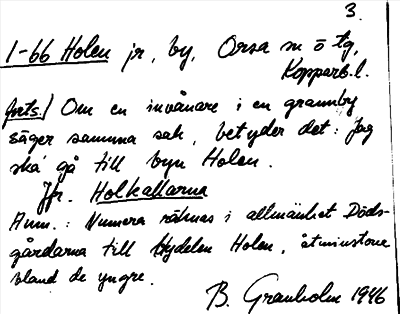 3.
1-66 Holen jr, by, Orsa sn ö tg,
Kopparb. l.
forts./ Om en invånare i en grannby
säger samma sak, betyder det: Jag
ska gå till byn Holen.
Jfr. Holkallarna
Anm.: Numera räknas i allmänhet Döds-
gårdarna till bydelen Holen, åtminstone
bland de yngre.
B. Granholm 1946